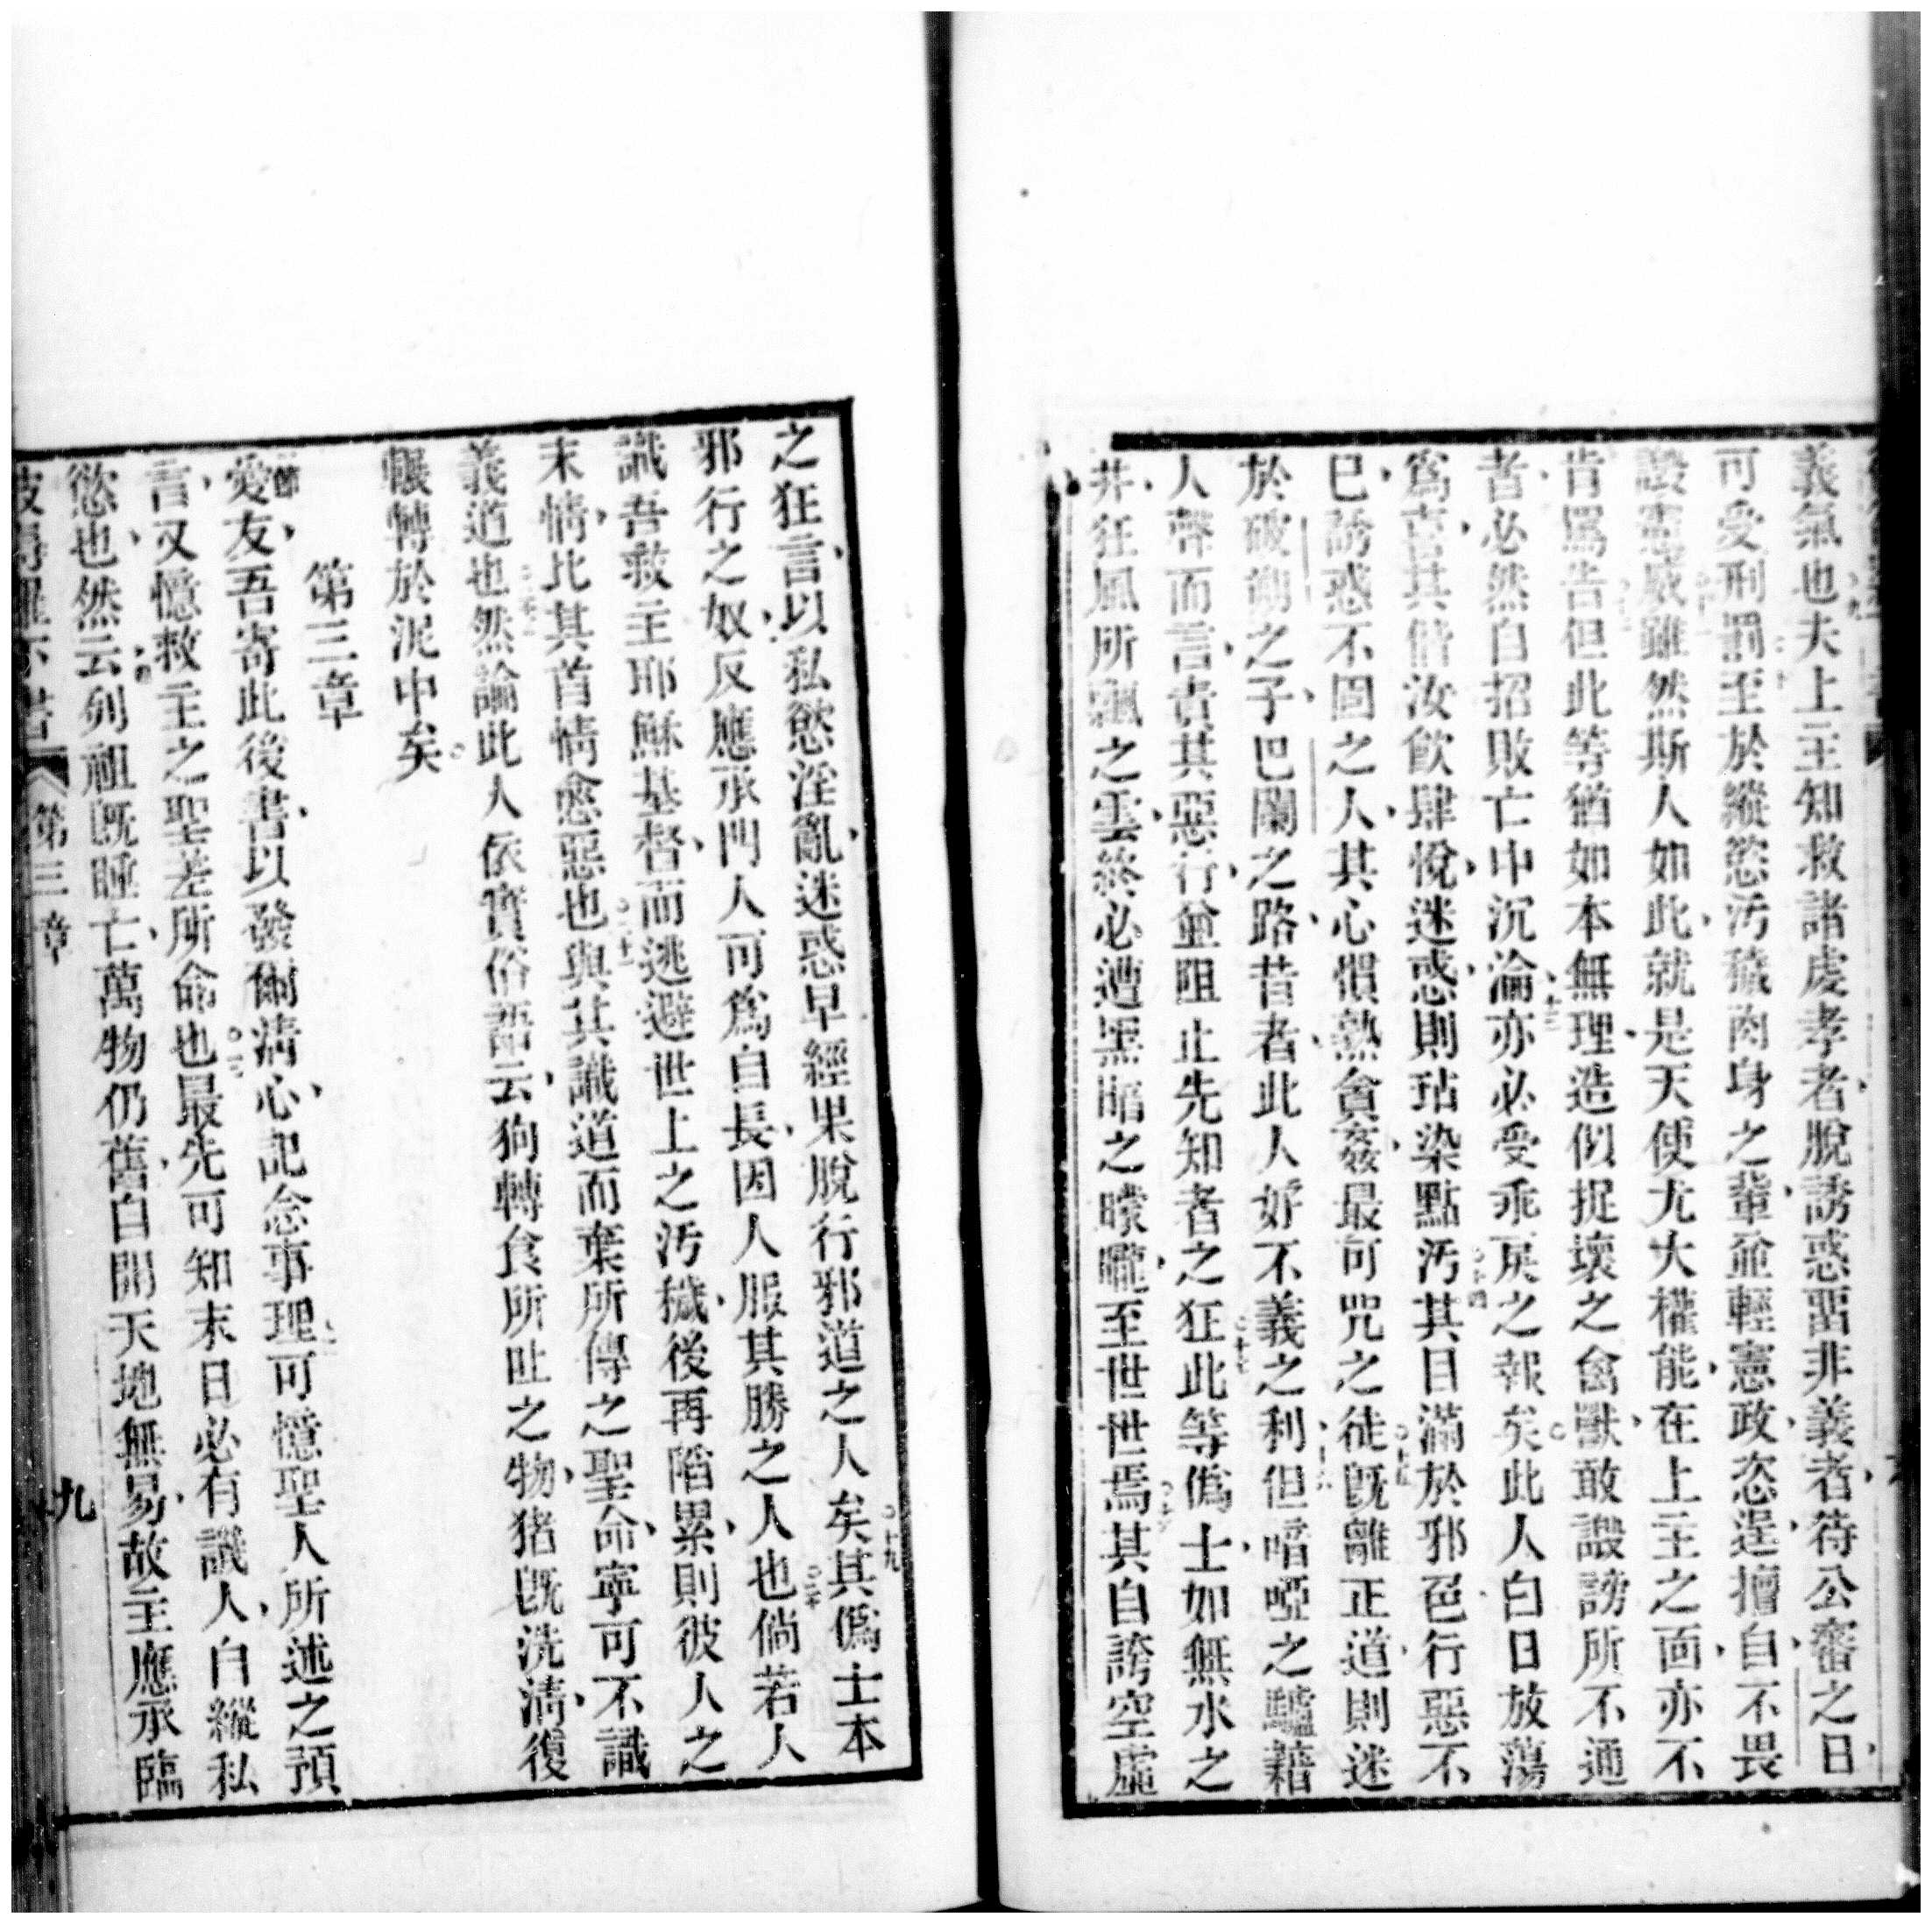 義氣也夫上主知救諸虔孝者脫誘惑畱非義者待公審之日
可受刑罰至於縱慾汚穢肉身之輩並輕憲政恣逞擅自不畏
毀憲威雖然斯人如此就是天使尤大權能在上主之面亦不
肯罵告但此等猶如本無理造似捉壞之禽獸敢譭謗所不通
者必然自招敗亡中沉淪亦必受乖戾之報矣此人白日放蕩
爲喜其偕汝飮肆悅迷惑則玷染點汚其目滿於邪色行惡不
已誘惑不固之人其心慣熟貪姦最可咒之徒旣離正道則迷
於破謝之子巴闌之路昔者此人好不義之利但喑啞之驢藉
人聲而言責其惡行並阻止先知者之狂此等僞士如無水之
井狂風所飄之雲終必遭黑暗之曚曨至世世焉其自誇空虛
之狂言以私慾淫亂迷惑早經果脫行邪道之人矣其僞士本
邪行之奴反應承門人可爲自長因人服其勝之人也倘若人
識吾救主耶穌基督而逃避世上之汚穢後再陷累則彼人之
末情比其首情愈惡也與其識道而棄所傳之聖命寧可不識
義道也然論此人依實俗語云狗轉食所吐之物猪旣洗淸復
輾轉於泥中矣
第三章
一節
愛友吾寄此後書以發爾淸心記念事理可憶聖人所述之預
言又憶救主之聖差所命也最先可知末日必有譏人自縱私
慾也然云列祖旣睡亡萬物仍舊自開天地無易故主應承臨
彼得羅後書 第三章 九